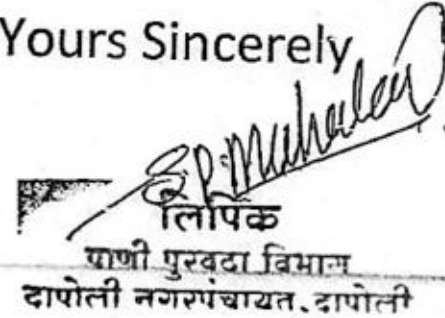 Yours Sincerely
लिपिक
पाणी पुरवठा विभाग
दापोली नगरपंचायत, दापोली